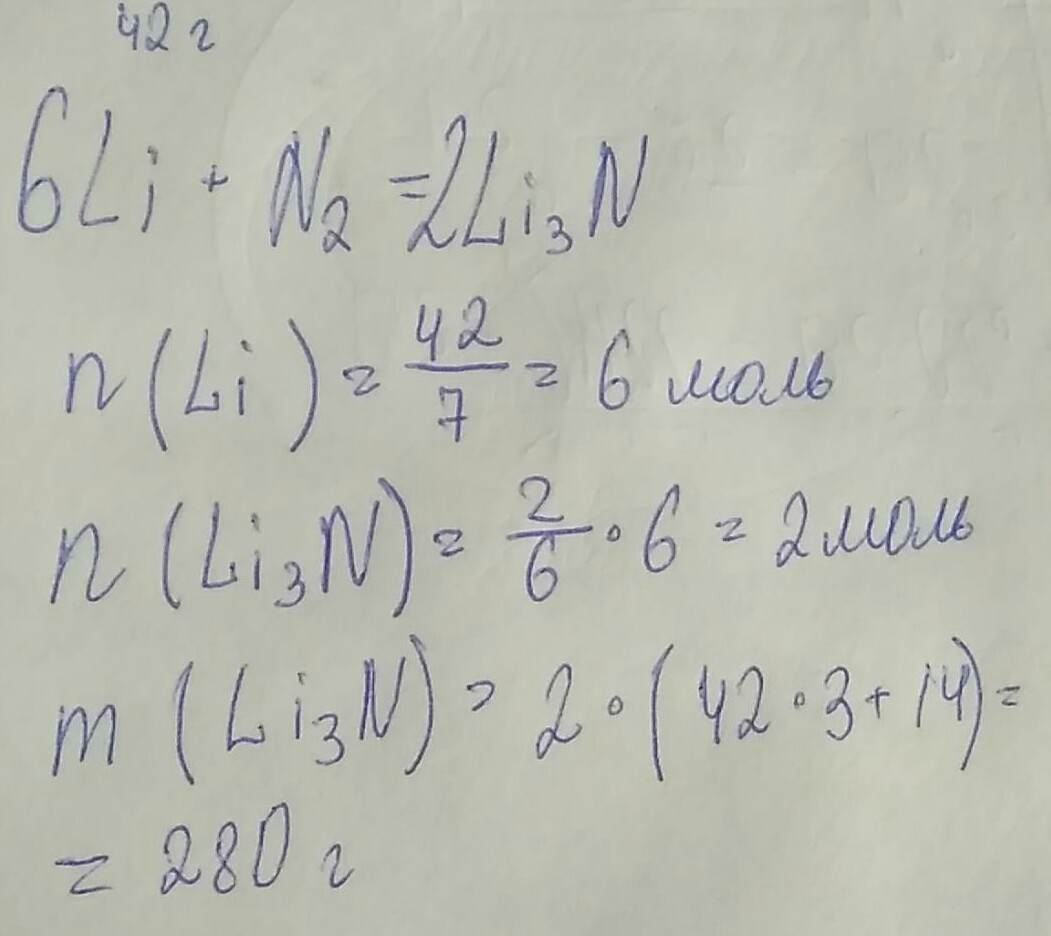 42 г
6Li + N₂ = 2Li₃N
n (Li) = 42/7 = 6 моль
n (Li₃N) = 2/6 · 6 = 2 моль
m (Li₃N) = 2 · (42 · 3 + 14) =
= 280 г